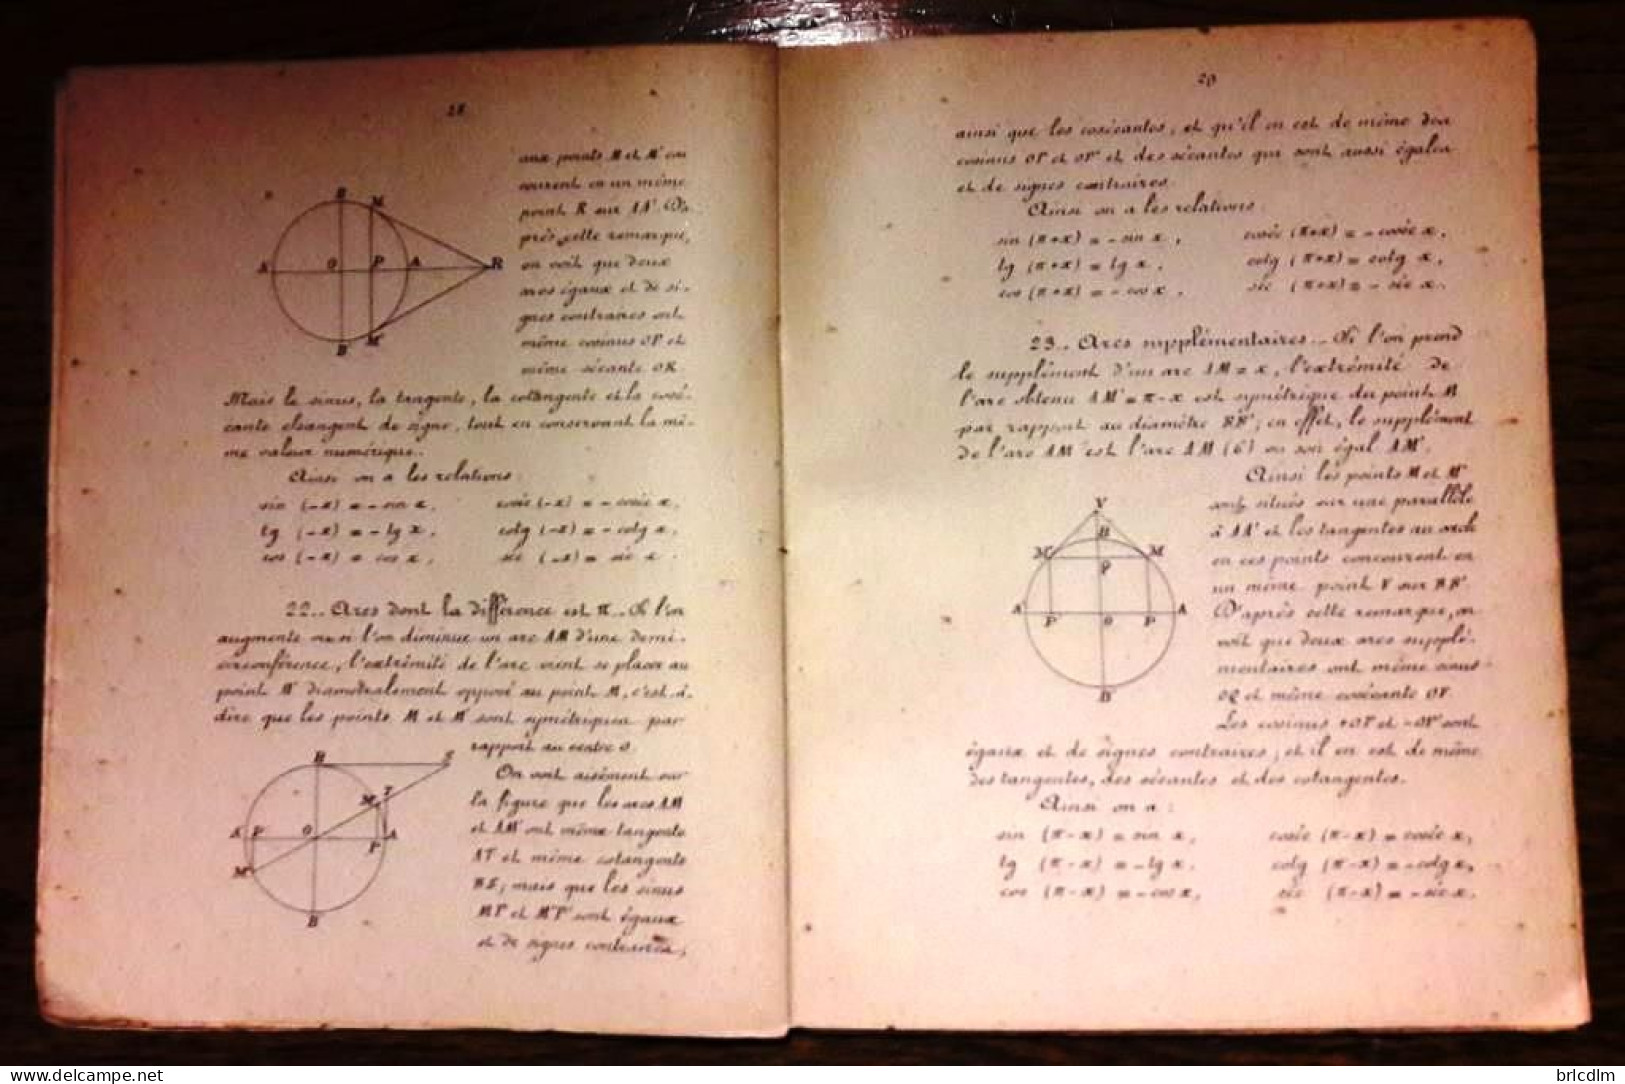 28
aux points M et M' con
courent en un même
point R sur AA'. D'a-
près cette remarque,
on voit que deux
arcs égaux et de si-
gnes contraires ont
même cosinus OP et
même sécante OR.
Mais le sinus, la tangente, la cotangente et la cosé-
cante changent de signe, tout en conservant la mê-
me valeur numérique.
Ainsi on a les relations:
sin (-x) = - sin x, coséc (-x) = - coséc x,
tg (-x) = - tg x, cotg (-x) = - cotg x,
cos (-x) = cos x, séc (-x) = séc x.
22.. Arcs dont la différence est π.. Si l'on
augmente ou si l'on diminue un arc AM d'une demi-
circonférence, l'extrémité de l'arc vient se placer au
point M' diamétralement opposé au point M, c'est-à-
dire que les points M et M' sont symétriques par
rapport au centre O.
On voit aisément sur
la figure que les arcs AM
et AM' ont même tangente
AT et même cotangente
BS; mais que les sinus
MP et M'P' sont égaux
et de signes contraires,
B M
A' O P A R
B' M'
B S
M T
A' P' O P A
M'
B'
29
ainsi que les cosécantes, et qu'il en est de même des
cosinus OP et OP' et des sécantes qui sont aussi égales
et de signes contraires.
Ainsi on a les relations:
sin (π+x) = - sin x, coséc (π+x) = - coséc x,
tg (π+x) = tg x, cotg (π+x) = cotg x,
cos (π+x) = - cos x, séc (π+x) = - séc x.
23.. Arcs supplémentaires.. Si l'on prend
le supplément d'un arc AM = x, l'extrémité de
l'arc obtenu AM' = π-x est symétrique du point M
par rapport au diamètre BB'; en effet, le supplément
de l'arc AM est l'arc A'M (6) ou son égal AM'.
Ainsi les points M et M'
sont situés sur une parallèle
à AA' et les tangentes au cercle
en ces points concourent en
un même point V sur BB'.
D'après cette remarque, on
voit que deux arcs supplé-
mentaires ont même sinus
OQ et même cosécante OV.
Les cosinus +OP et -OP' sont
égaux et de signes contraires, et il en est de même
des tangentes, des sécantes et des cotangentes.
Ainsi on a:
sin (π-x) = sin x, coséc (π-x) = coséc x,
tg (π-x) = -tg x. cotg (π-x) = -cotg x,
cos (π-x) = -cos x, séc (π-x) = -séc x.
V
B
M' Q M
A' P' O P A
B'
delcampe.net
bricdlm